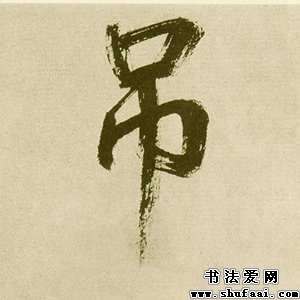 吊
书法爱网
www.shufaai.com